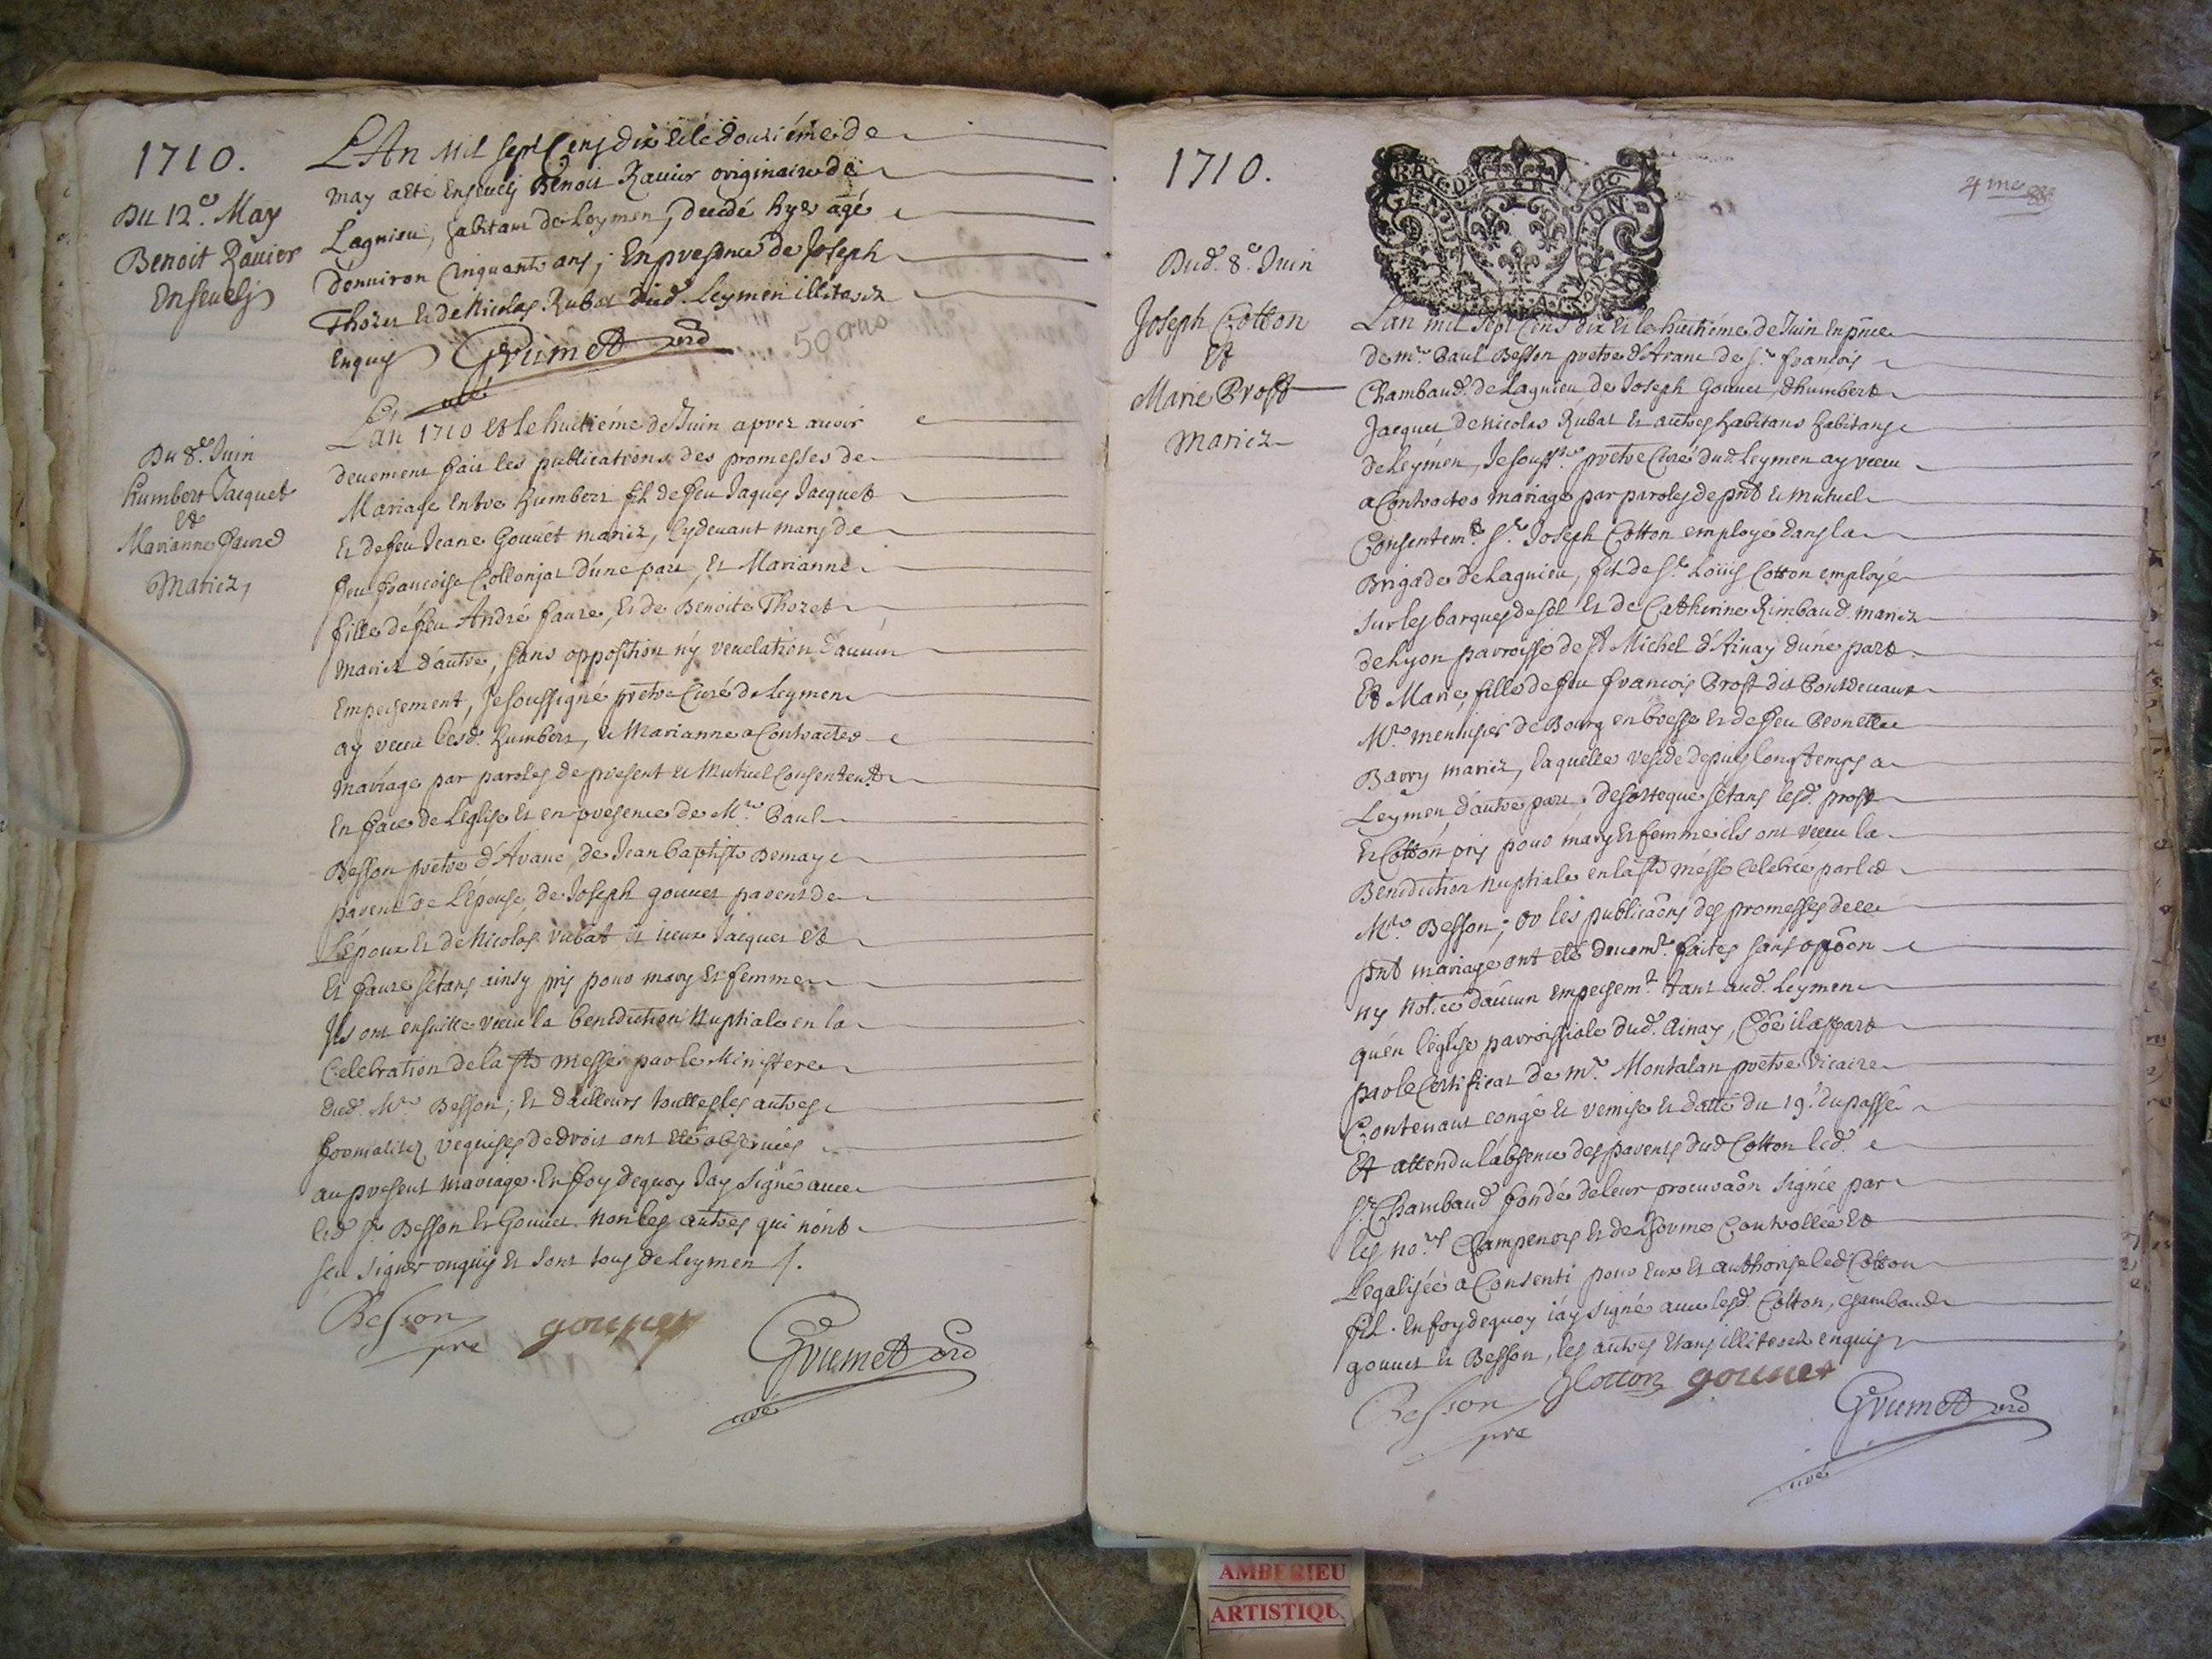 1710.
Du 12.e May
Benoit Ravier
Ensevely
L'An Mil sept Cens dix et le douziéme de
may a eté Ensevely Benoit Ravier originaire de
Lagnieu, habitant de Leymen, decedé hyer agé
d'environ Cinquante ans; En presence de Joseph
Thozet et de Nicolas Rubat dud. Leymen illiterez
enquis Grumet curé
50 ans
Du 8.e Juin
humbert Jacquet
Et
Marianne faure
Mariez,
L'an 1710 et le huitiéme de Juin aprez avoir
deuement fait les publications des promesses de
Mariage Entre humbert fils de feu Jaques Jacquet
et de feu Jeane Gouvet mariez, Cydevant mary de
feu francoise Collonjat d'une part, et Marianne
fille de feu André faure, et de Benoite Thozet
mariez d'autre, sans opposition ny revelation d'aucun
Empechement, Je soussigné prêtre Curé de Leymen
ay receu lesd. humbert, et Marianne a Contracter
mariage par paroles de present et Mutuel Consentem.t
En face de L'eglise et en presence de M.re Paul
Besson prêtre d'Aranc, de Jean Baptiste Demay
parent de L'épouse, de Joseph gouvet parent de
L'époux et de Nicolas rubat et iceux Jacquet et
et faure s'étans ainsy pris pour mary et femme
Ils ont ensuitte receu la benediction Nuptiale en la
Celebration de la ste messe par le Ministere
dud. M.re Besson; et d'ailleurs touttes les autres
formalitez requises de droit ont eté observées
au present mariage. En foy de quoy J'ay signé avec
led. sr. Besson et Gouvet. Non les autres qui n'ont
sceu signer enquis et sont tous de Leymen /.
Besson
pre
gouvet
Grumet
curé
1710.
GEN
4me
Dud. 8.e Juin
Joseph Cotton
Et
Marie Prost
Mariez
L'an mil sept Cens dix et le huitiéme de Juin En pnce
de m.re Paul Besson prêtre d'Aranc de s.r francois
Chambaud de Lagnieu de Joseph Gouvet, d'humbert
Jacquet de Nicolas Rubat et autres habitans habitans
de Leymen, Je souss.né prêtre Curé dud. Leymen ay receu
a Contracter mariage par paroles de pnt et mutuel
Consentem.t s.r Joseph Cotton employé dans la
Brigade de Lagnieu, fils de s.r Loüis Cotton employé
sur les barques de sel et de Catherine Rimbaud mariez
de Lyon parroisse de st Michel d'Ainay d'une part
Et Marie, fille de feu francois Prost dit Pontdevaux
M.re menuisier de Bourg en bresse et de feu Pernette
Barry mariez, laquelle reside depuis longtemps a
Leymen, d'autre part. desorteque s'étans lesd. prost
et Cotton pris pour mary et femme ils ont receu la
Benediction Nuptiale en la ste messe Celebrée par led.
M.re Besson; or les publicaôns des promesses de ce
pnt mariage ont eté deuem.t faites sans oppôon
ny Notice d'aucun empechem.t tant aud. Leymen
qu'en l'église parroissiale dud. Ainay, Côe il appart
par le Certificat de m.re Montalan prêtre Vicaire
Contenant congé et remise et datté du 19.e du passé
Et attendu l'absence des parents dud Cotton led.
s.r Chambaud fondé de leur procuraôn signée par
les no.res Champenois et delhorme Controllée et
Legalisée a Consenti pour Eux et authorisé led Cotton
fils. En foy de quoy j'ay signé avec lesd. Cotton, chambaud
gouvet et Besson, les autres étans illiterez enquis
Besson
pre
JCotton
gouvet
Grumet
curé
AMBERIEU
ARTISTIQU